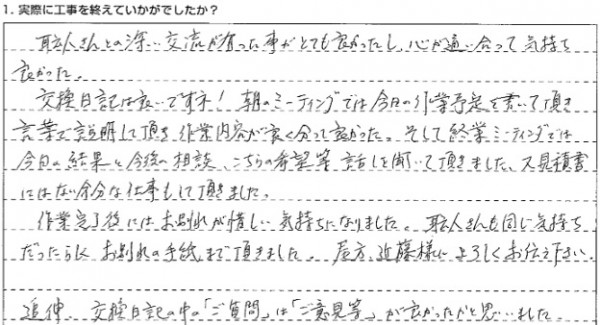 1. 実際に工事を終えていかがでしたか？
職人さんとの深い交流が有った事がとても良かったし、心が通い合って気持ち
良かった。
交換日記は良いですネ！ 朝のミーティングでは今日の作業予定を書いて頂き
言葉で説明して頂き、作業内容が良く分って良かった。そして終業ミーティングでは
今日の結果と今後の相談、こちらの希望等 話しを聞いて頂きました、又見積書
にはない余分な仕事もして頂きました。
作業完了後にはお別れが惜しい気持ちになりました。職人さんも同じ気持ち
だったらしく お別れの手紙まで頂きました。 近藤様によろしくお伝え下さい
追伸、交換日記の中の「ご質問」は「ご意見等」が良かったかと思いました。